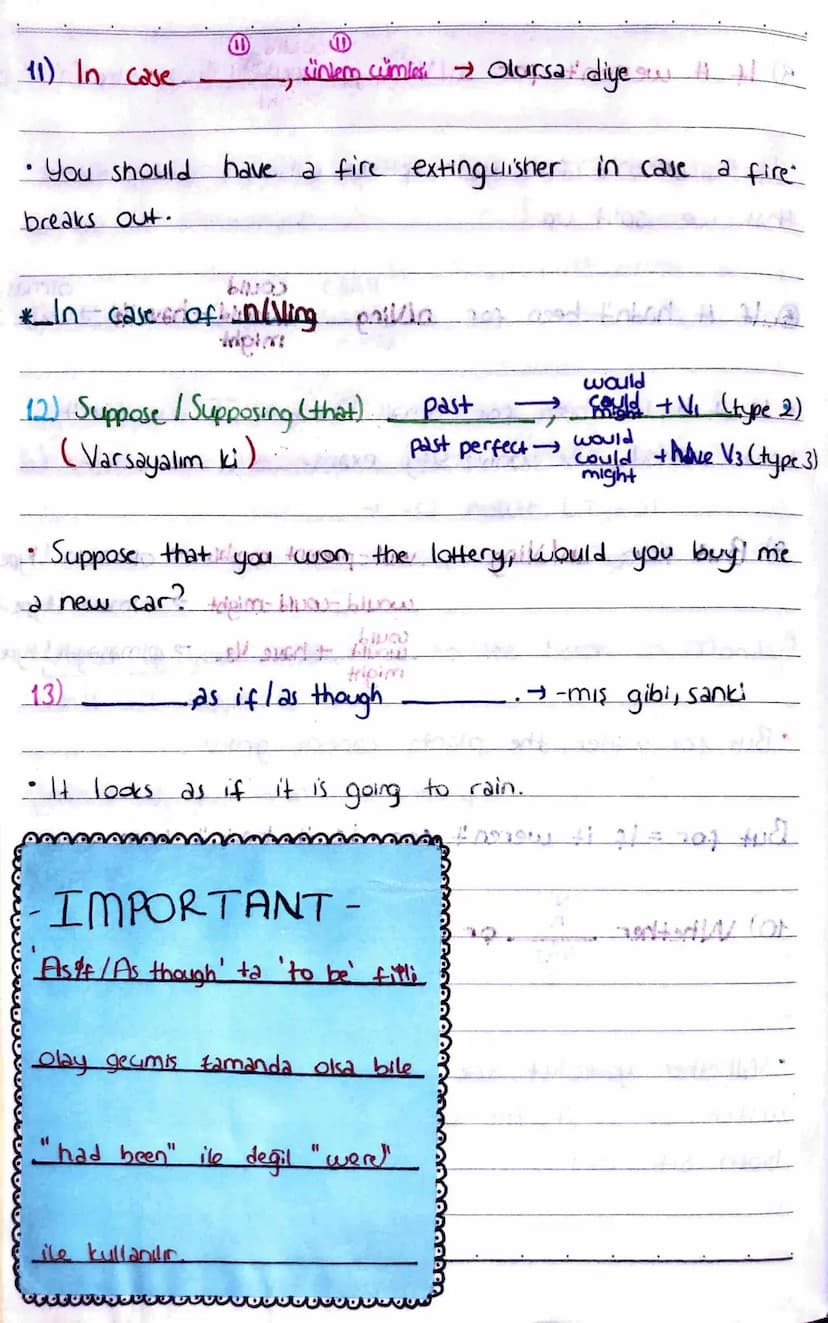 11) In case ______, önlem cümlesi → Olursa diye
• You should have a fire extinguisher in case a fire
breaks out.
* In case of n/Ving
12) Suppose / Supposing (that) past → would could might + V1 (type 2)
(Varsayalım ki) past perfect → would could might + have V3 (type 3)
• Suppose that you won the lottery, would you buy me
a new car?
13) ______ as if/as though ______. → -mış gibi, sanki
• It looks as if it is going to rain.
- IMPORTANT -
'As if/As though' ta 'to be' fiili
olay geçmiş zamanda olsa bile
"had been" ile değil "were"
ile kullanılır.